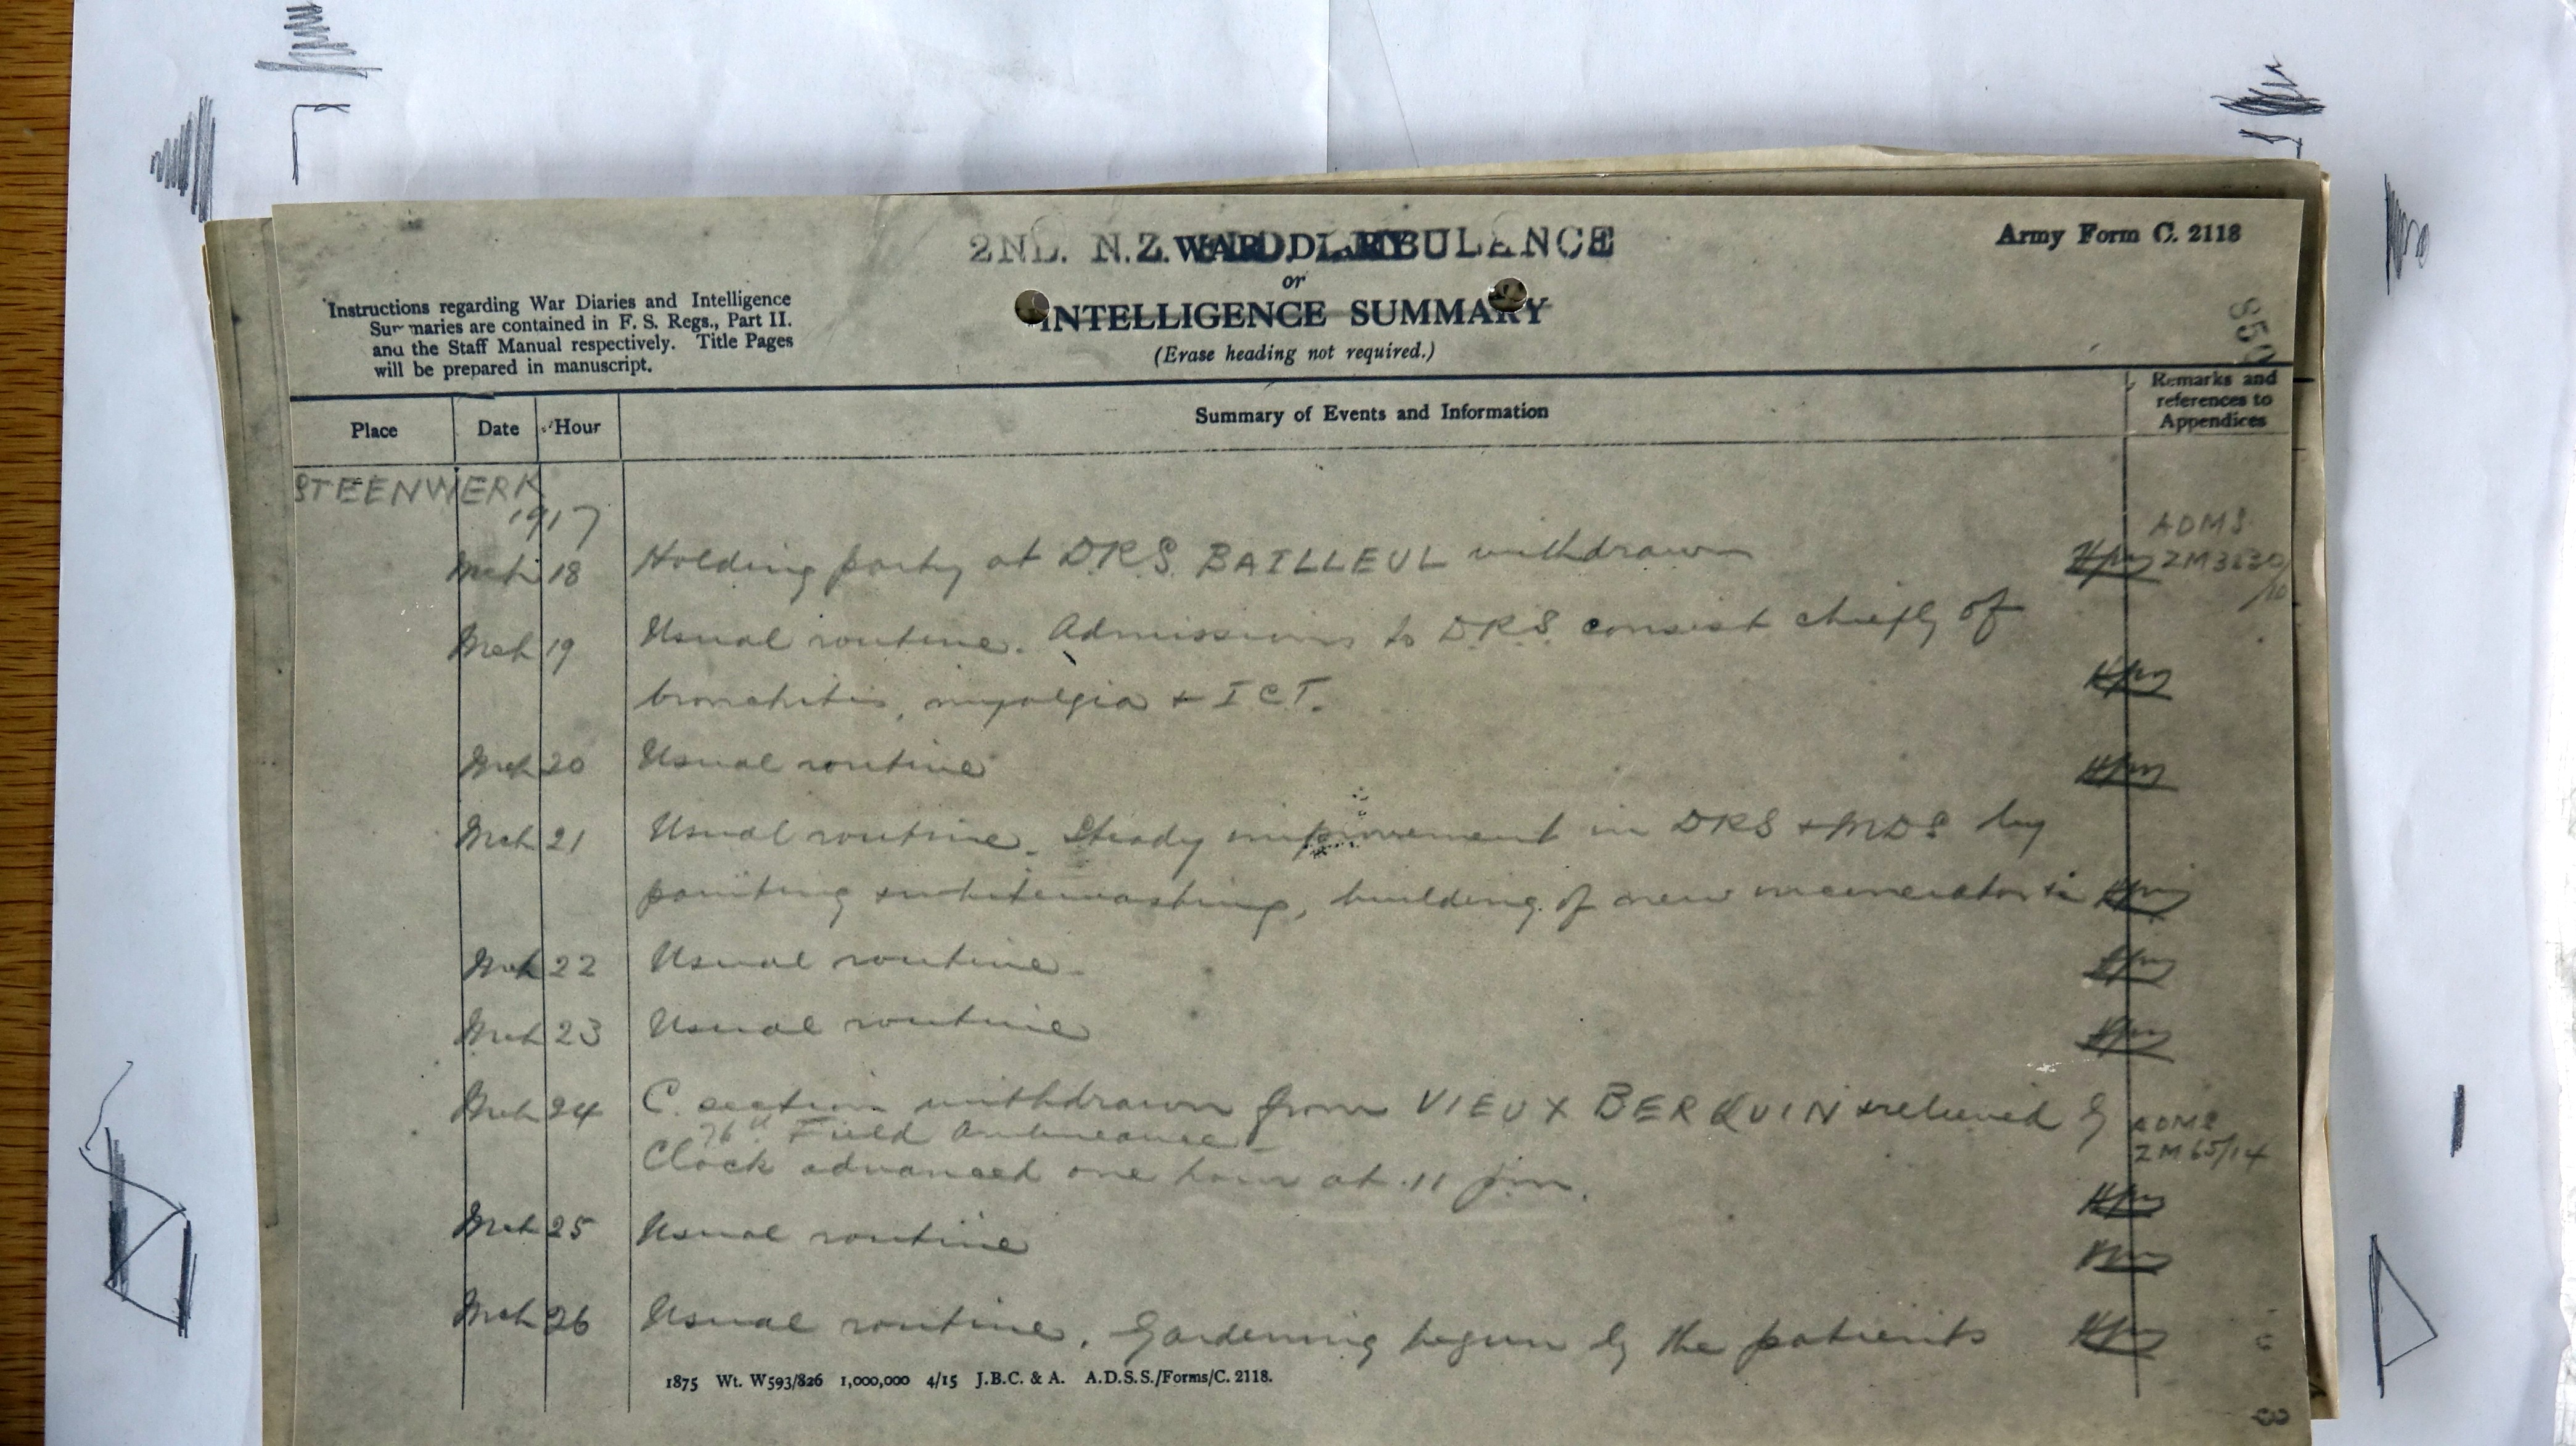 2ND. N.Z. FIELD AMBULANCE
WAR DIARY
or
INTELLIGENCE SUMMARY
(Erase heading not required.)
Army Form C. 2118
Instructions regarding War Diaries and Intelligence
Summaries are contained in F. S. Regs., Part II.
and the Staff Manual respectively. Title Pages
will be prepared in manuscript.
Place Date Hour Summary of Events and Information Remarks and
references to
Appendices
STEENWERK
1917
Mch 18 Holding party at D.R.S. BAILLEUL withdrawn ADMS
Mch 19 Usual routine. Admissions to D.R.S. consist chiefly of
bronchitis, myalgia + I C T.
Mch 20 Usual routine
Mch 21 Usual routine. Steady improvement in DRS + MDS by
painting + whitewashing, building of new incinerator
Mch 22 Usual routine.
Mch 23 Usual routine
Mch 24 C. section withdrawn from VIEUX BERQUIN + relieved by ADMS
76th Field Ambulance ZM 65/14
Clock advanced one hour at 11 pm.
Mch 25 Usual routine
Mch 26 Usual routine. Gardening begun by the patients
1875 Wt. W593/826 1,000,000 4/15 J.B.C. & A. A.D.S.S./Forms/C. 2118.